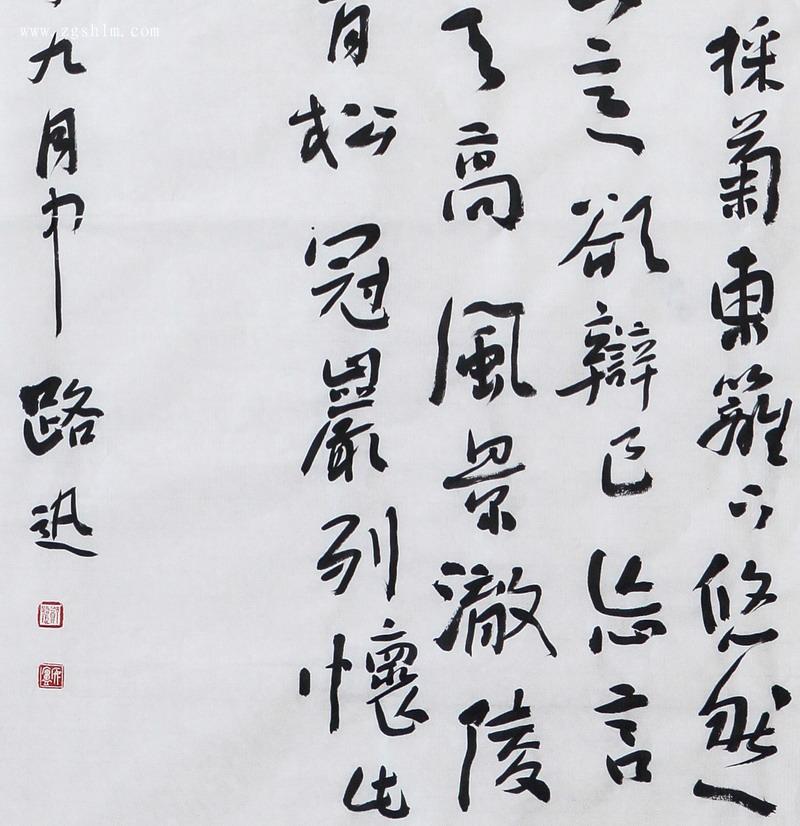 www.zgshlm.com
採菊東籬下悠然
意欲辯已忘言
天高風景澈陵
青松冠巖列懷此
九月中路迅